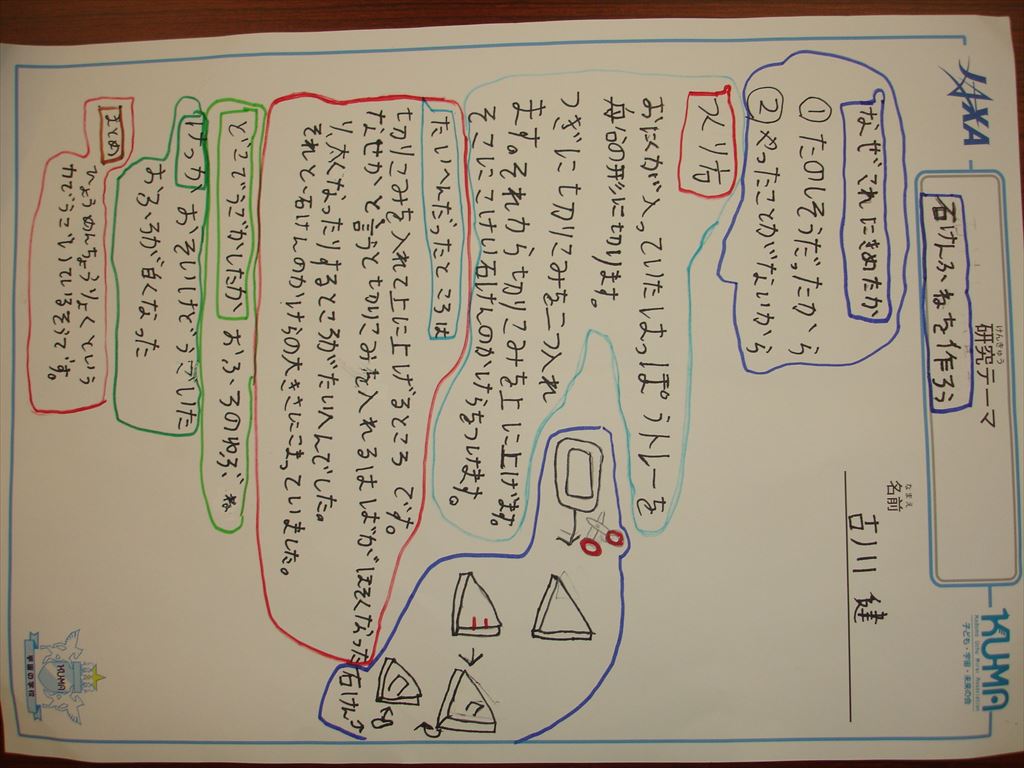 JAXA
研究テーマ
けんきゅう
石けんふねを作ろう
KUMA
Kodomo Uchu Mirai Association
子ども・宇宙・未来の会
名前
なまえ
古川 健
なぜこれにきめたか
① たのしそうだったから
② やったことがないから
つくり方
おにくが入っていたはっぽうトレーを
舟の形に切ります。
つぎに切りこみを二つ入れ
ます。それから切りこみを上に上げます。
そこにこけい石けんのかけらをつけます。
石けん
たいへんだったところは
切りこみを入れて上に上げるところです。
なぜかと言うと切りこみを入れるはばがほそくなった
り、太くなったりするところがたいへんでした。
それと、石けんのかけらの大きさにこまっていました。
どこでうごかしたか おふろのゆぶね
けっか おそいけどうごいた
おふろが白くなった
まとめ
ひょうめんちょうりょくという
力でうごいているそうです。
KUMA
宇宙の学校